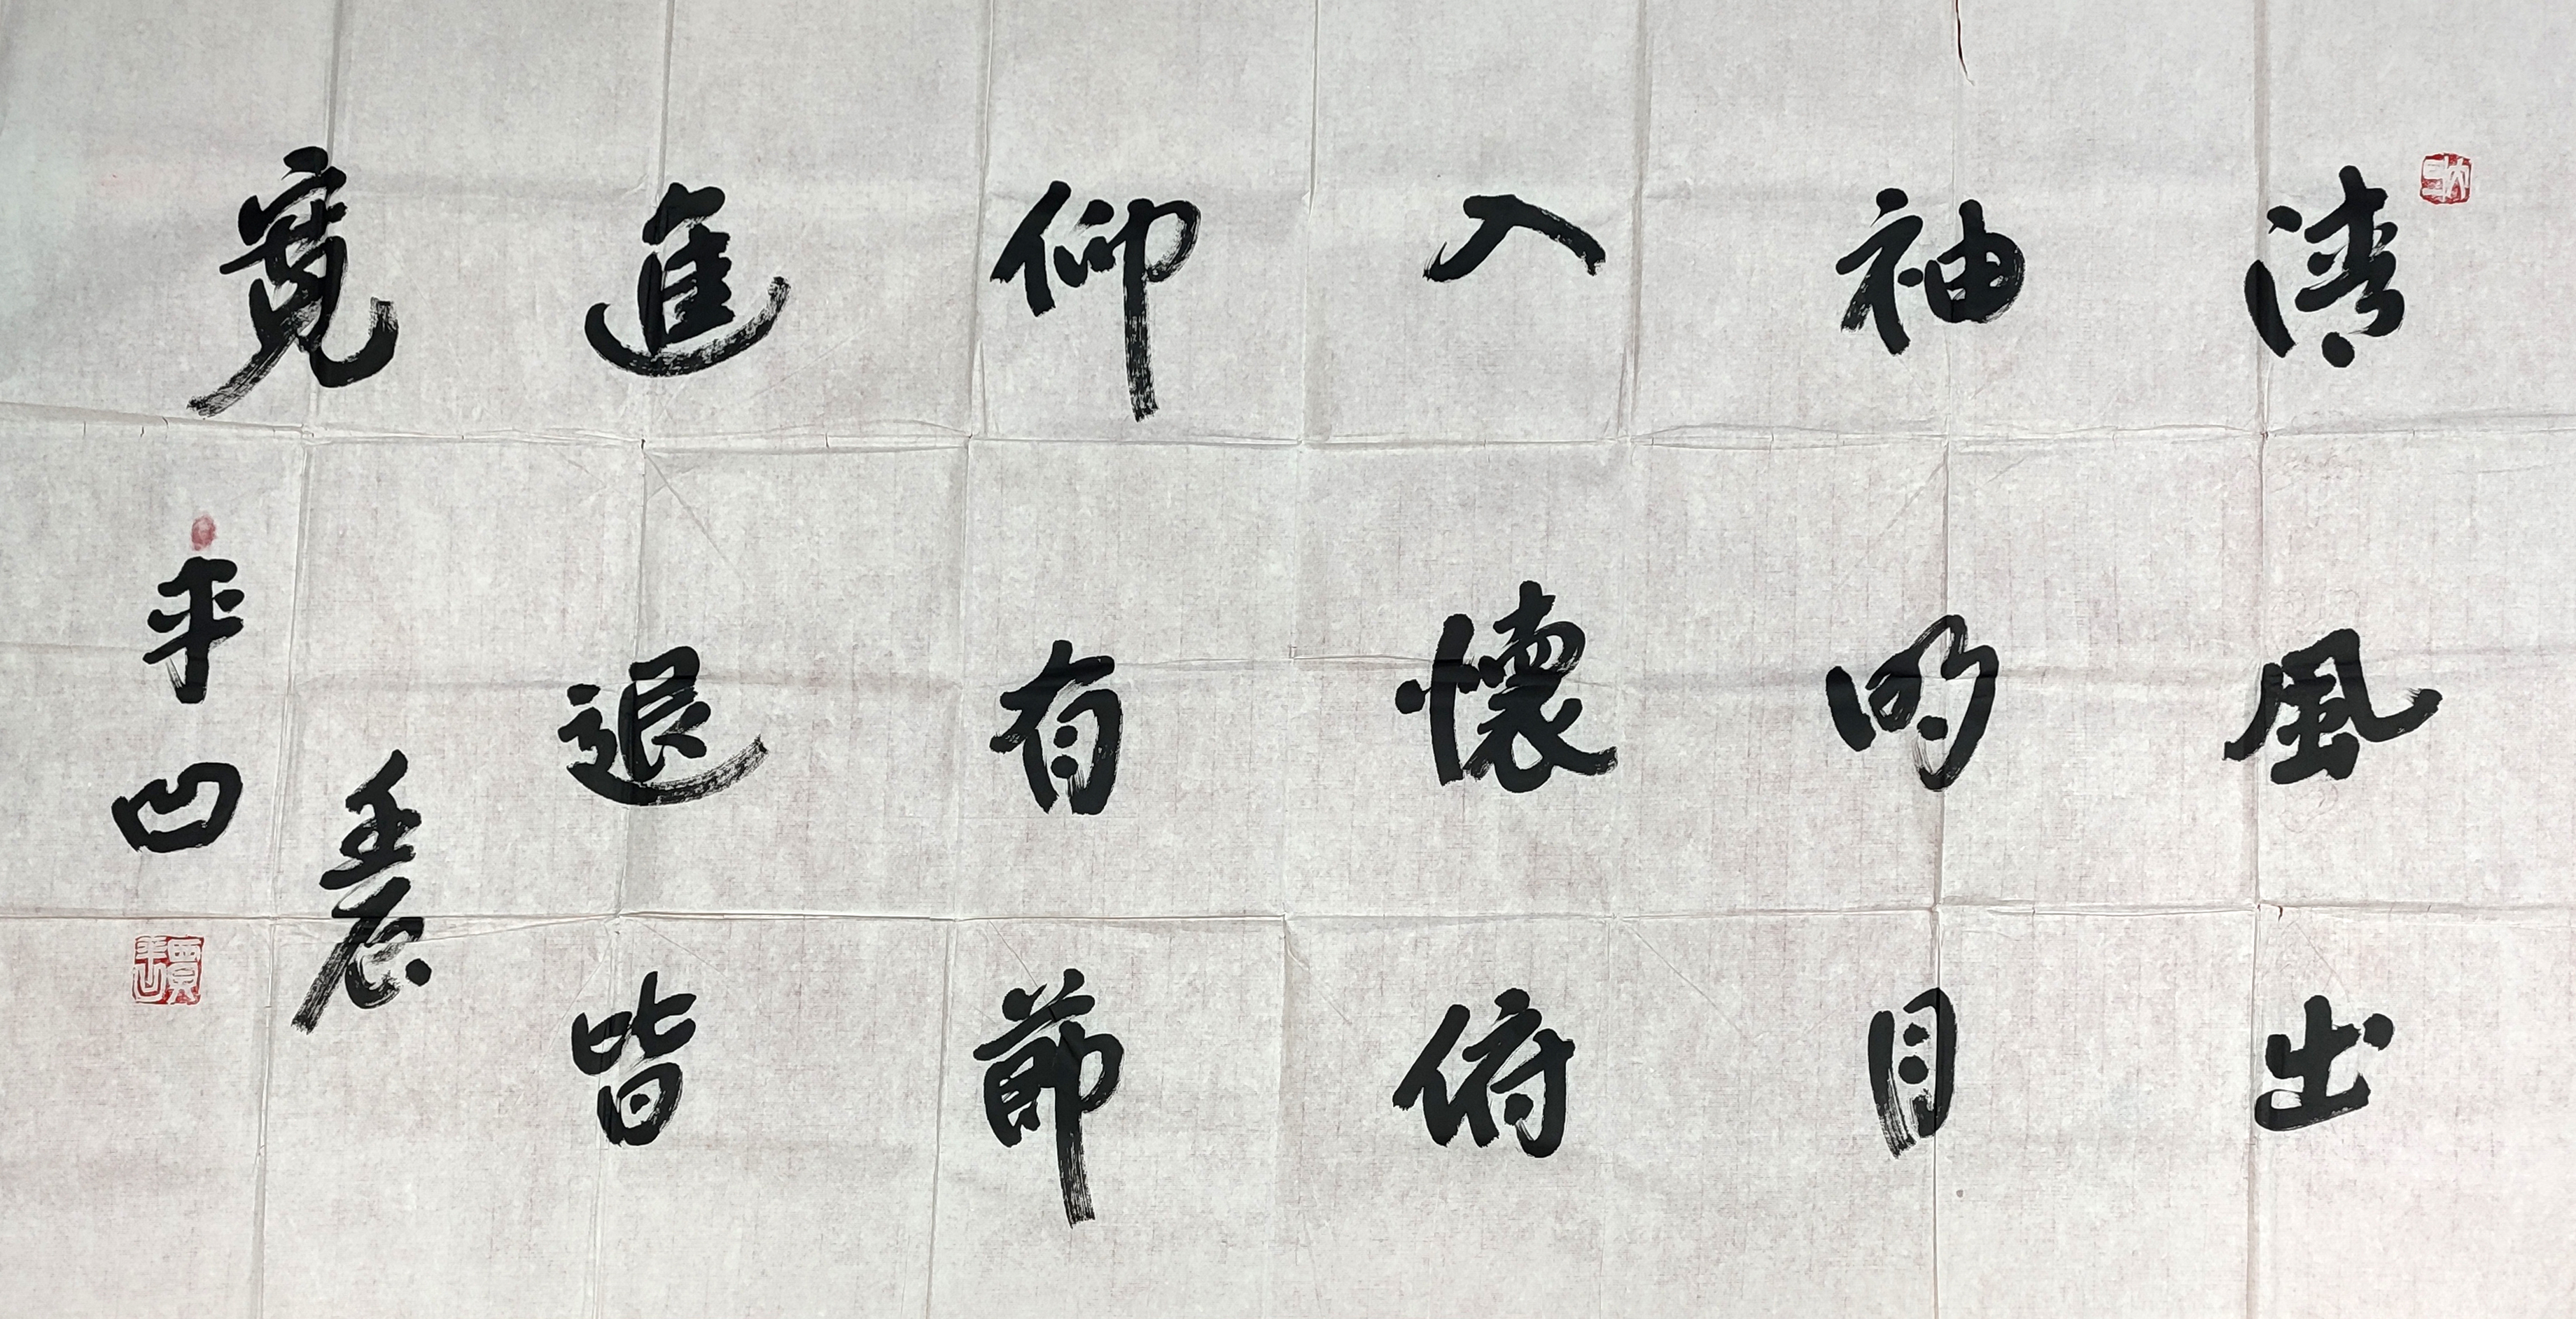 清風出
袖明月
入懷俯
仰有節
進退皆
寬
壬辰
平凹
賈平凹